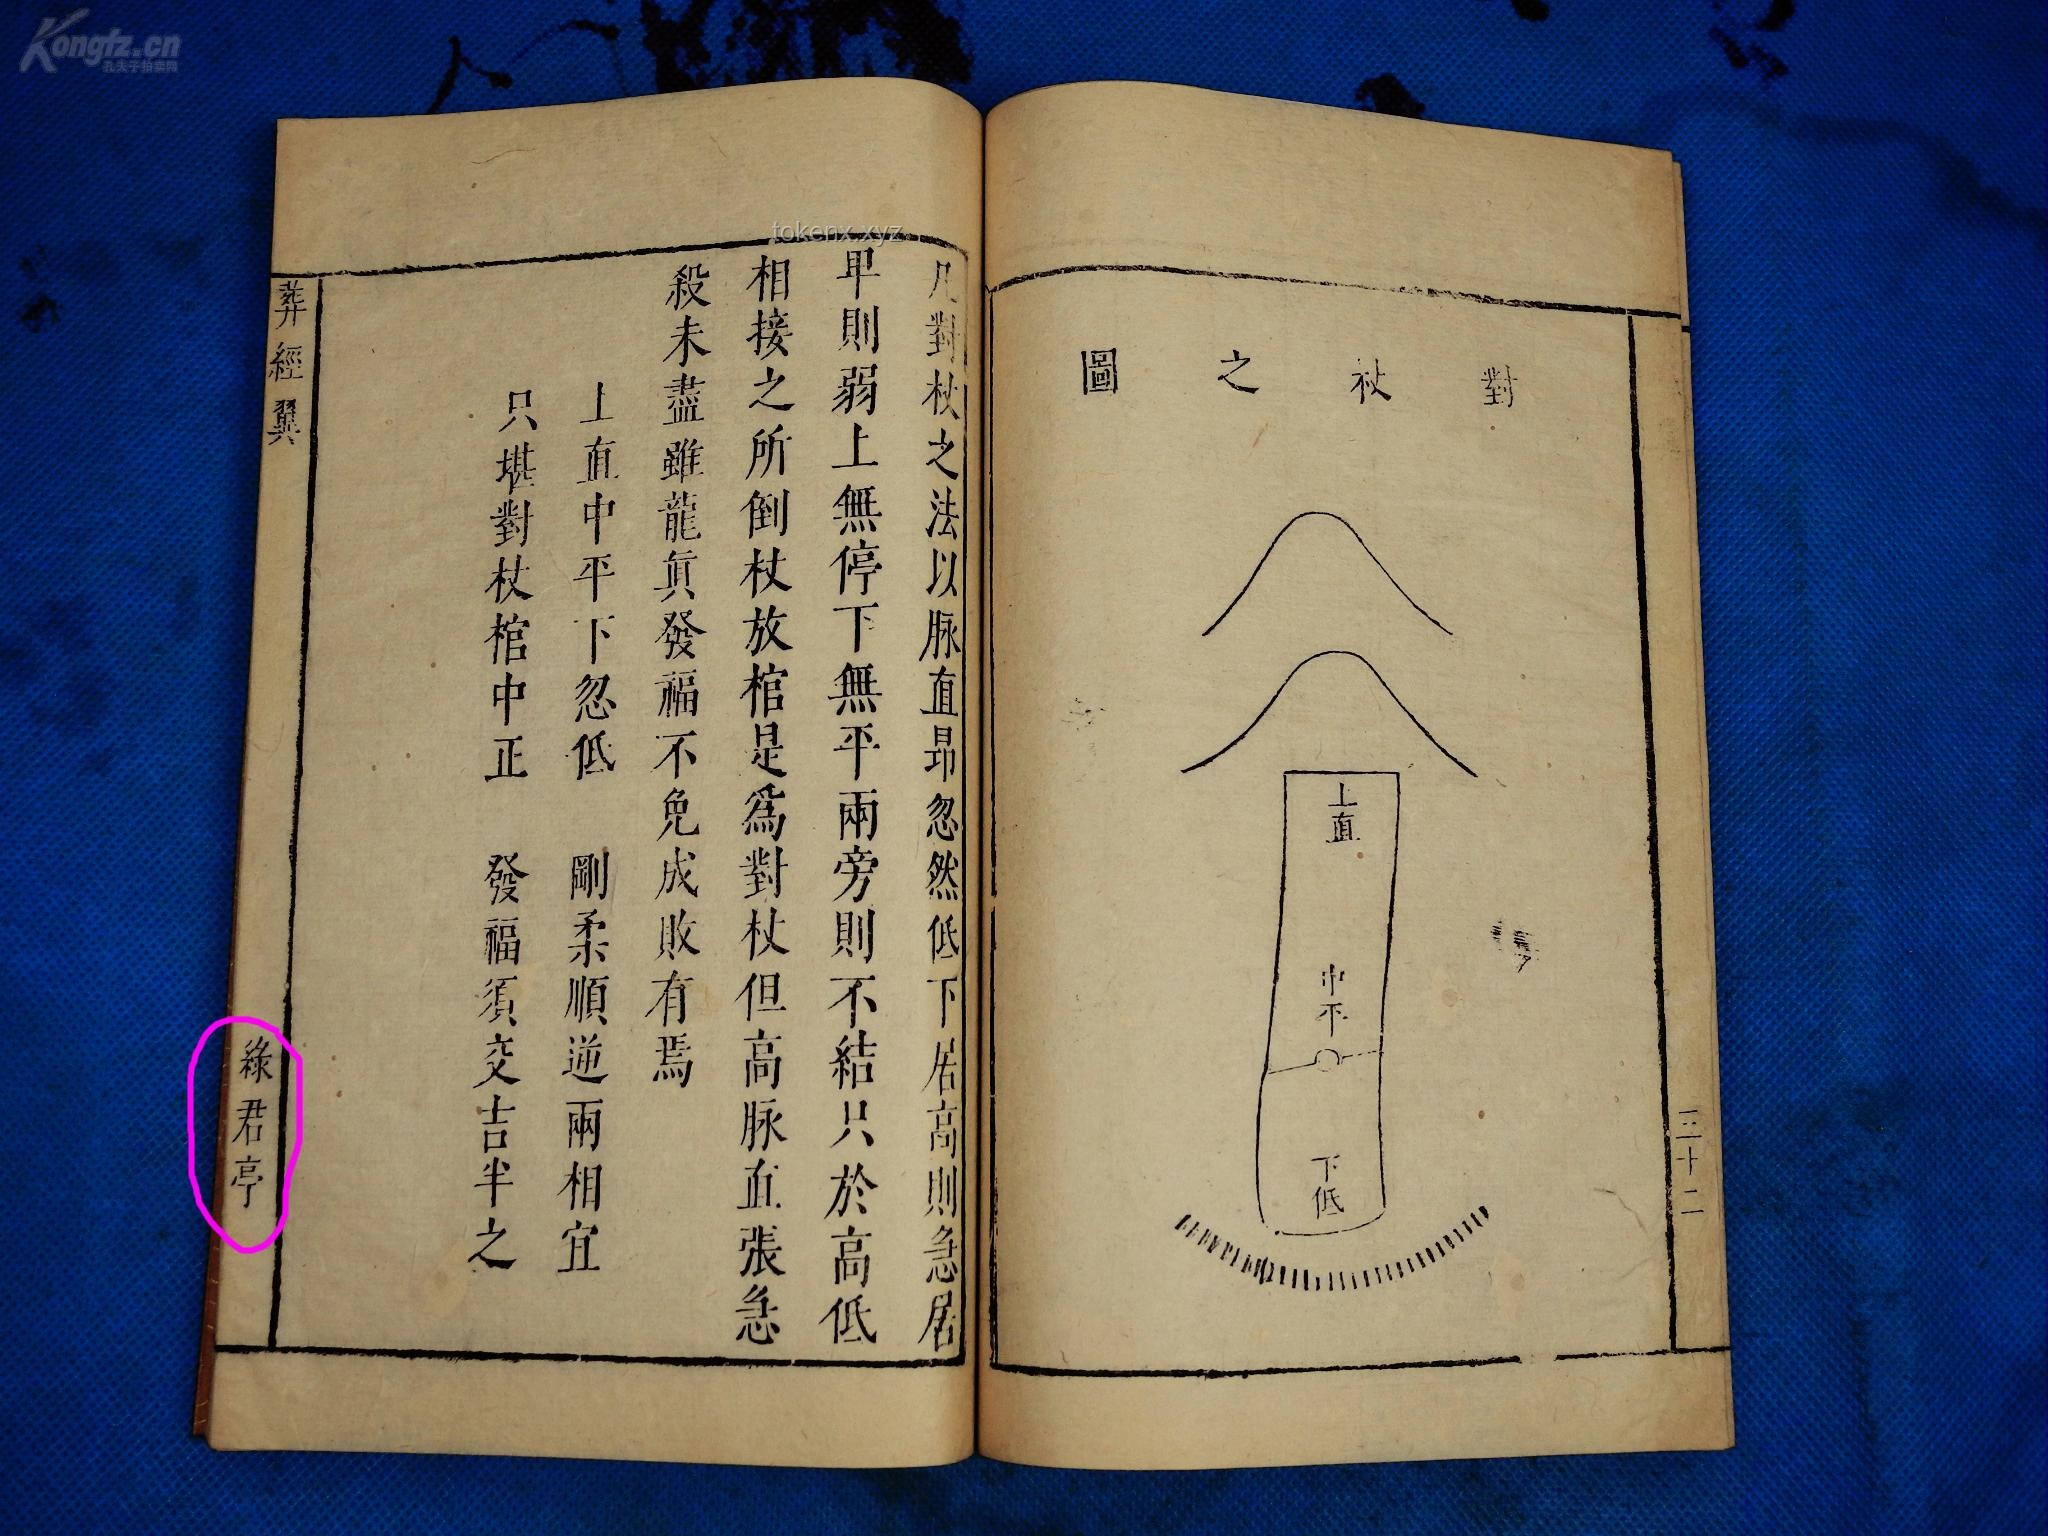 Kongfz.cn
孔夫子拍卖网
tokenx.xyz
對杖之圖
上直
中平
下低
三十二
凡對杖之法以脉直昂忽然低下居高則急居
卑則弱上無停下無平兩旁則不結只於高低
相接之所倒杖放棺是爲對杖但高脉直張急
殺未盡雖龍眞發福不免成敗有焉
上直中平下忽低 剛柔順逆兩相宜
只堪對杖棺中正 發福須交吉半之
葬經翼
綠君亭